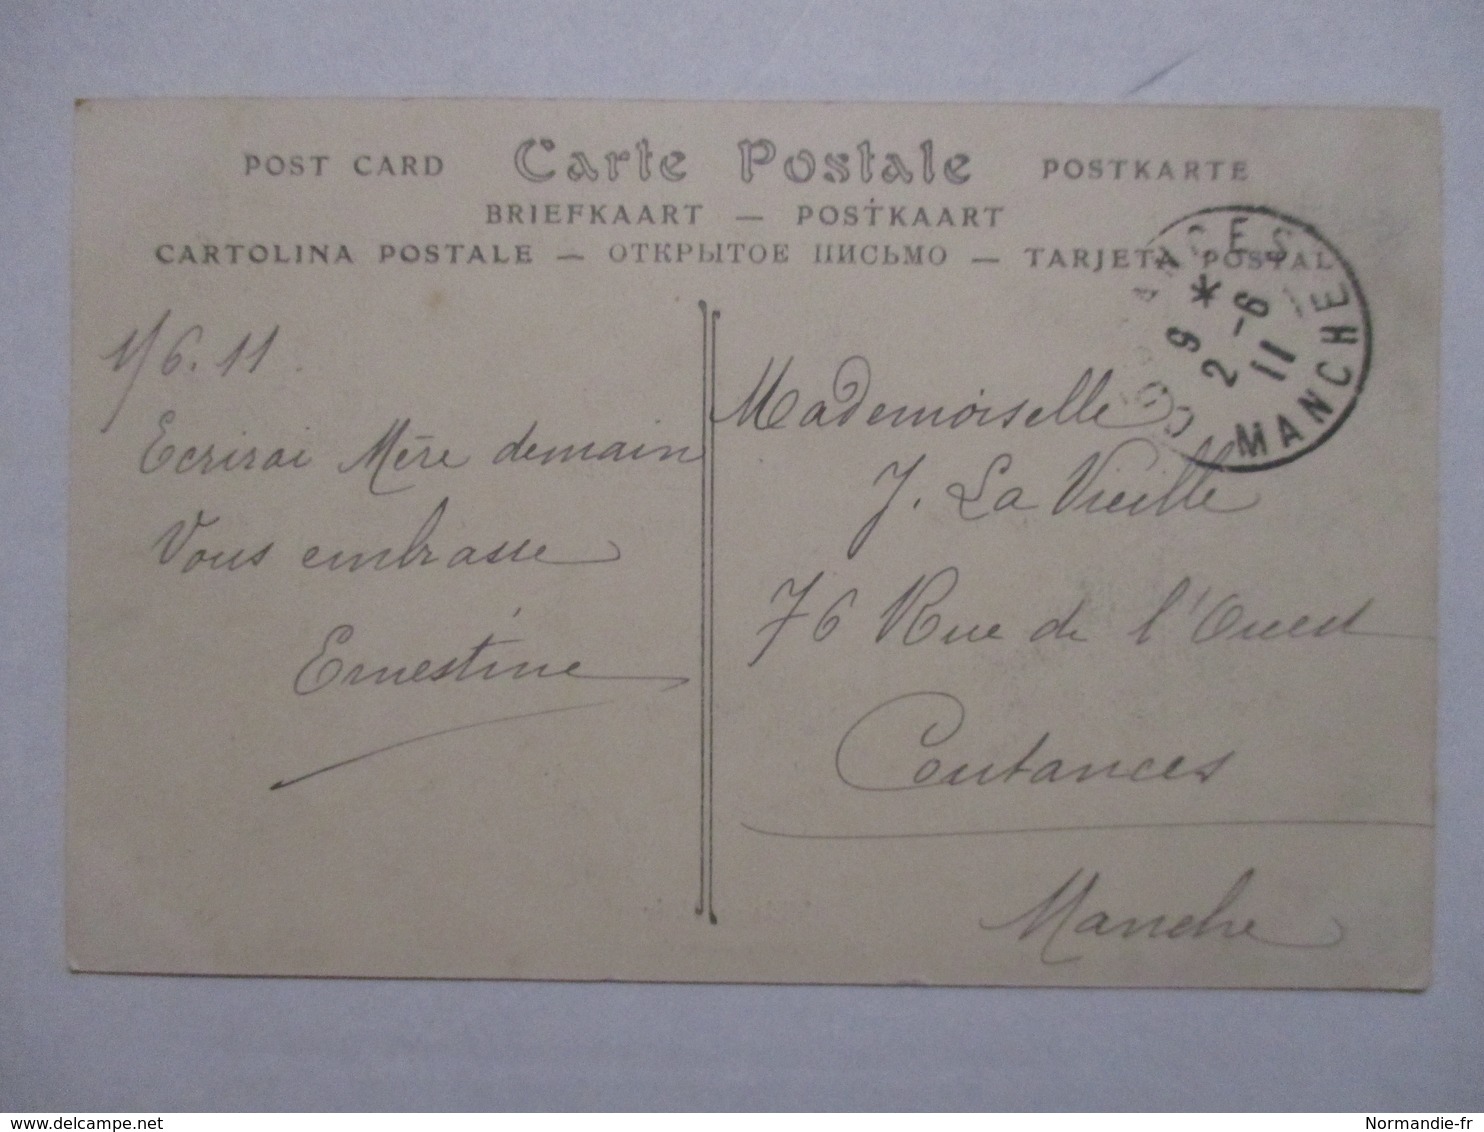 POST CARD Carte Postale POSTKARTE
BRIEFKAART — POSTKAART
CARTOLINA POSTALE — ОТКРЫТОЕ ПИСЬМО — TARJETA POSTAL
1/6.11
Ecrirai Mère demain
Vous embrasse
Ernestine
COUTANCES
*
9
2-6
11
MANCHE
Mademoiselle
J. La Vieille
76 Rue de l'Ouest
Coutances
Manche
www.delcampe.net
Normandie-fr